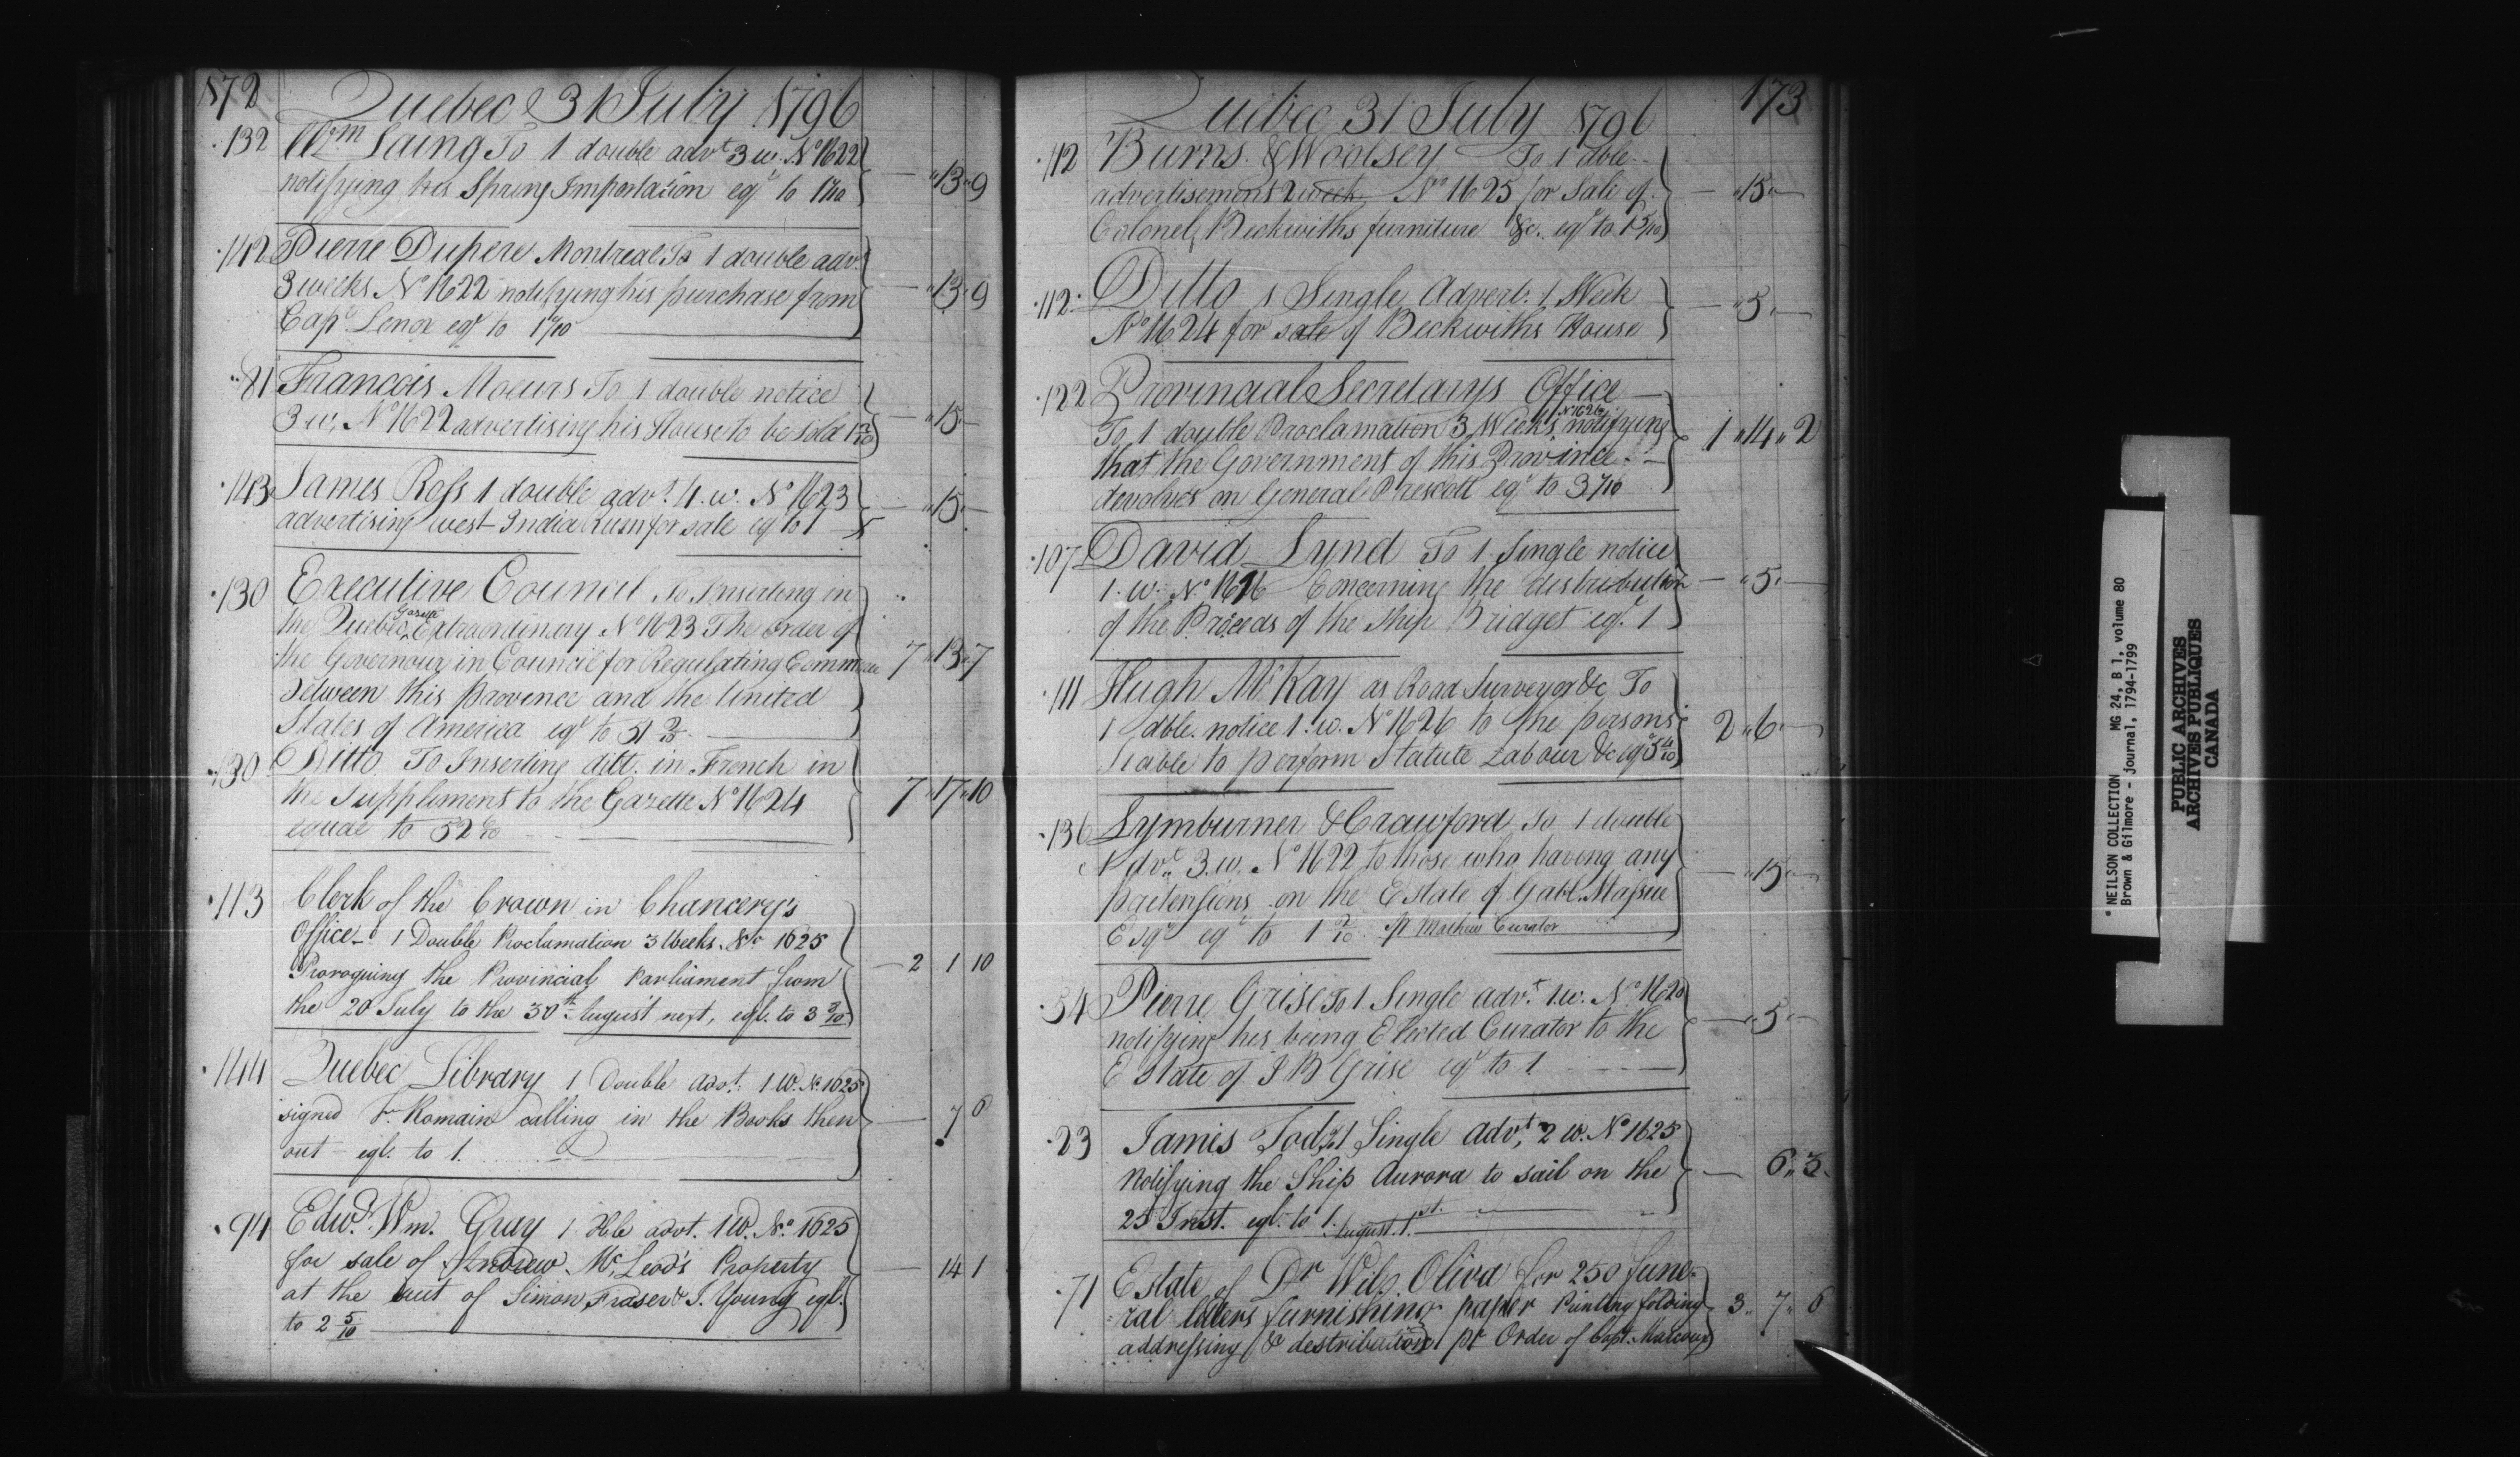 172
Quebec 31 July 1796
132 Wm Laing To 1 double advt 3 w. No 1622
notifying his Spring Importation eql to 1 1/10 — "13"9
142 Pierre Dupere Montreal To 1 double advt
3 weeks No 1622 notifying his purchase from — "13"9
Capt Lenox eql to 1 1/10
81 Francois Moeurs To 1 double notice
3 w. No 1622 advertising his House to be Sold 1 2/10 — "15"—
143 James Ross 1 double advt. 4. w. No 1623
advertising west India Rum for sale eql to 1 — "15"—
130 Executive Council To Inserting in
the Quebec Gazette Extraordinary No 1623 The Order of
the Governour in Council for Regulating Commerce 7"13"7
between this provence and the United
States of America eql to 51 2/10
130 Ditto To Inserting ditt. in French in
the Suppliment to the Gazette No 1624 7"17"10
equal to 52
113 Clerk of the Crown in Chancery's
Office — 1 Double Proclamation 3 Weeks. No 1625
Proroguing the Provincial Parliament from — 2 1 10
the 20 July to the 30th August next, eql. to 3
144 Quebec Library 1 Double advt. 1 W. No 1625
signed Fr. Romain calling in the Books then — 7 6
out – eql. to 1.
94 Edwd. Wm. Gray 1 Dble advt. 1 W. No. 1625
for sale of Andrew McLeod's Property — 14 1
at the suit of Simon Fraser & J. Young eql.
to 2 5/10
173
Quebec 31 July 1796
112 Burns & Woolsey To 1 dble
advertisement 2 week No 1625 for Sale of — "15"—
Colonel Beckwiths furniture &c. eql to 1 5/10
112 Ditto 1 Single Advert. 1 Week — "5"—
No 1624 for sale of Beckwiths House
122 Provincial Secretarys Office
To 1 double Proclamation 3 Weeks No 1626 notifying 1"14"2
that the Government of this Province
devolves on General Prescott eql to 3 7/10
107 David Lynd To 1 Single notice
1. w. No 1616 Concerning the distribution — "5"—
of the Proceeds of the Ship Bridget eql. 1
111 Hugh McKay as Road Surveyor &c To
1 dble. notice 1. w. No 1626 to the persons 2"6"—
Liable to perform Statute Labour &c eql 5 4/10
136 Lymburner & Crawford To 1 double
Advt. 3. w. No 1622 to those who having any — "15"—
pretensions on the Estate of Gabl. Massue
Esqr eql to 1 2/10 pr Mathew Curator
54 Pierre Grise To 1 Single advt. 1. w. No 1620
notifying his being Elected Curator to the — "5"—
Estate of J B Grise eql to 1
23 James Tod, To 1 Single advt, 2 w. No 1625
Notifying the Ship Aurora to sail on the — 6"3
25 Inst. eql. to 1.
August 1st.
71 Estate of Dr Wilo Oliva for 250 fune=
=ral letters furnishing paper Printing folding 3"7"6
addressing & destribution pr Order of Capt. Marcoux
* NEILSON COLLECTION MG 24, B 1, volume 80
Brown & Gilmore - journal, 1794-1799
PUBLIC ARCHIVES
ARCHIVES PUBLIQUES
CANADA